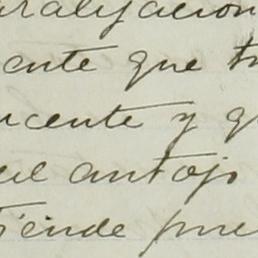 aralizacion
ente que tr
ucente y q
el antojo
tiende pue